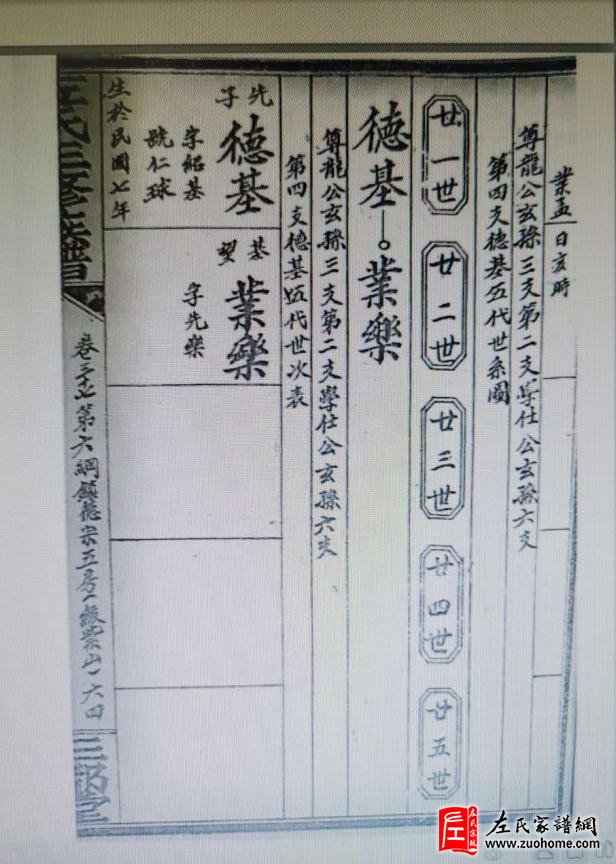 業孟
日亥時
尊龍公玄孫三支第二支學仕公玄孫六支
第四支德基五代世系圖
廿一世
廿二世
廿三世
廿四世
廿五世
德基—業樂
尊龍公玄孫三支第二支學仕公玄孫六支
第四支德基五代世次表
先子
德基
字紹基
號仁球
生於民國七年
基望
業樂
字先樂
氏三修族譜
第六綱鎮德宗五房
一六四
左氏家譜網
www.zuohome.com